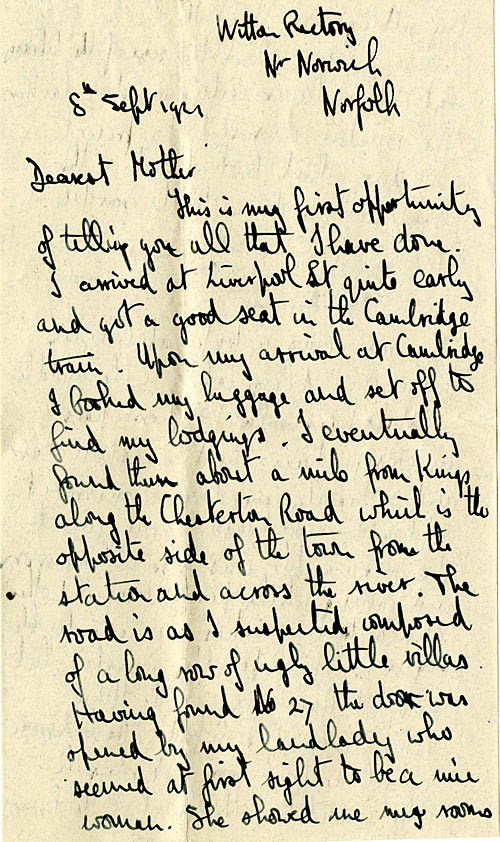 Witton Rectory
Nr Norwich
Norfolk
8th Sept 1921
Dearest Mother
This is my first opportunity
of telling you all that I have done.
I arrived at Liverpool St quite early
and got a good seat in the Cambridge
train. Upon my arrival at Cambridge
I booked my luggage and set off to
find my lodgings. I eventually
found them about a mile from Kings
along the Chesterton Road which is the
opposite side of the town from the
station and across the river. The
road is as I suspected composed
of a long row of ugly little villas.
Having found No 27 the door was
opened by my landlady who
seemed at first sight to be a nice
woman. She showed me my rooms